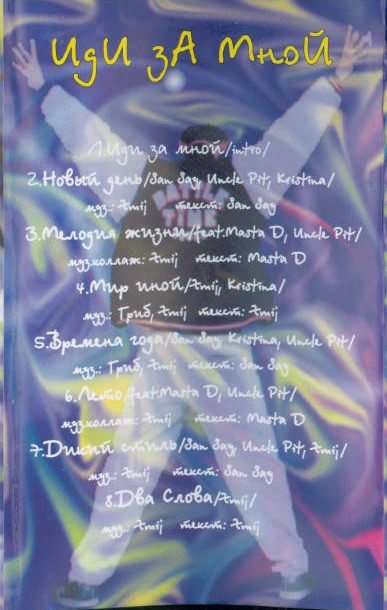 иди зА мной
1.Иди за мной/intro/
2.Новый день/San Say, Uncle Pit, Kristina/
муз.: Zmij текст: San Say
3.Мелодия жизни/feat.Masta D, Uncle Pit/
муз.коллаж: Zmij текст: Masta D
4.Мир иной/Zmij, Kristina/
муз.: Гриб, Zmij текст: Zmij
5.Времена года/San Say, Kristina, Uncle Pit/
муз.: Гриб, Zmij текст: San Say
6.Лето/feat.Masta D, Uncle Pit/
муз.коллаж: Zmij текст: Masta D
7.Дикий стиль/San Say, Uncle Pit, Zmij/
муз.: Zmij текст: San Say
8.Два Слова/Zmij/
муз.: Zmij текст: Zmij